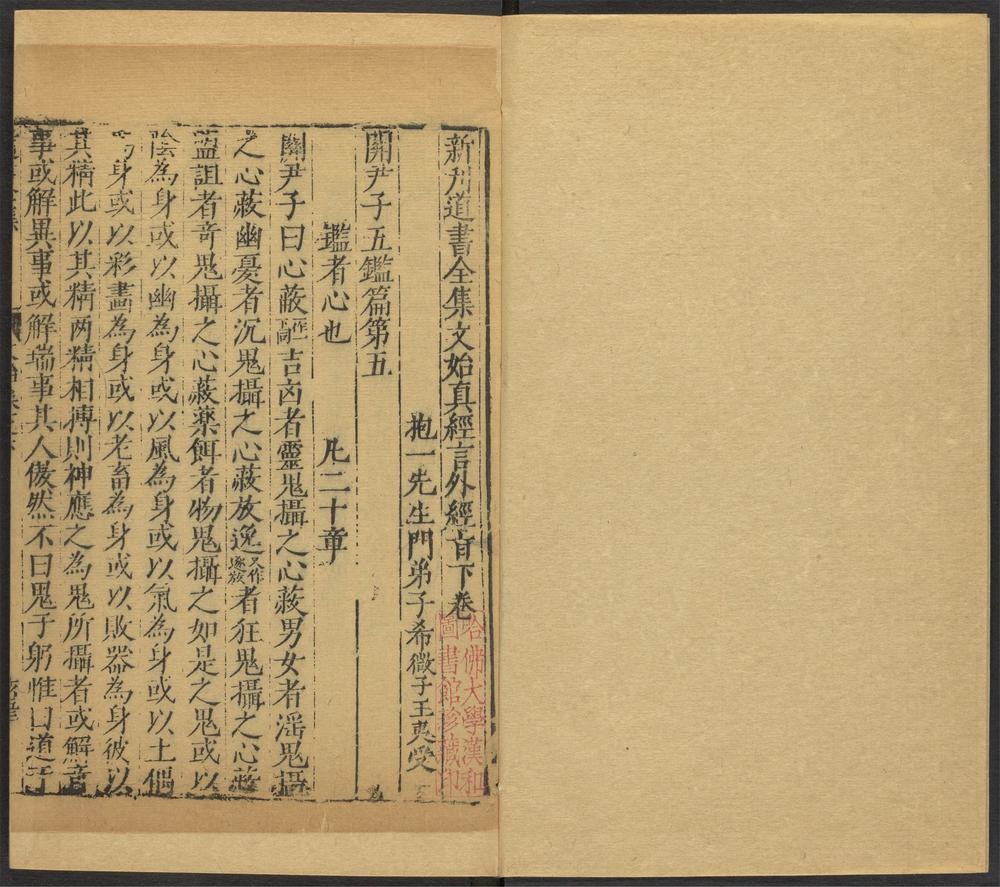 新刋道書全集文始真經言外經㫖下卷
抱一先生門弟子希微子王夷受
關尹子五鑑篇第五
鑑者心也 凡二十章
關尹子曰心蔽一作下同吉凶者靈鬼攝之心蔽男女者滛鬼攝
之心蔽幽憂者沉鬼攝之心蔽放逸又作逐放者狂鬼攝之心蔽
盟詛者奇鬼攝之心蔽藥餌者物鬼攝之如是之鬼或以
陰為身或以幽為身或以風為身或以氣為身或以土偶
為身或以彩畫為身或以老畜為身或以敗器為身彼以
其精此以其精两精相搏則神應之為鬼所攝者或解竒
事或解異事或解瑞事其人傲然不曰鬼于躬惟曰道于
哈佛大學漢和
圖書館珍藏印